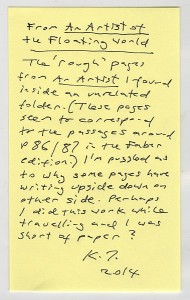 From An Artist of
the Floating World
The "rough" pages
from An Artist I found
inside an unrelated
folder. (These pages
seem to correspond
to the passages around
p 86/87 in the Faber
edition.) I'm puzzled as
to why some pages have
writing upside down on
other side. Perhaps
I did this work while
travelling and I was
short of paper?
K.I.
2014